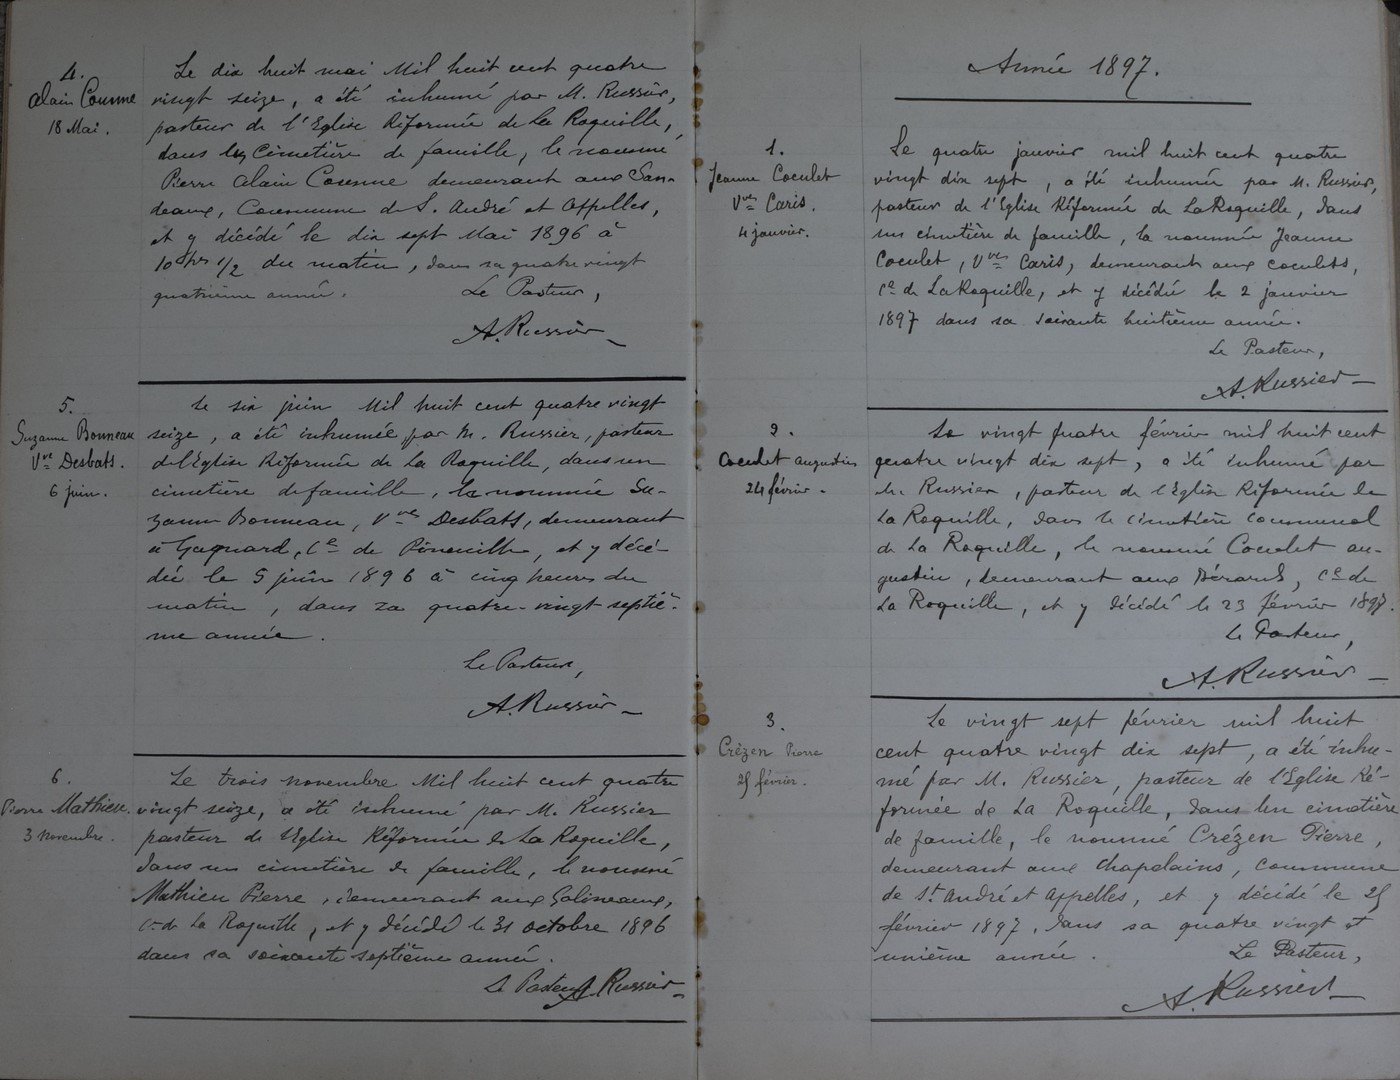 4.
Alain Cosme
18 Mai.
Le dix huit mai Mil huit cent quatre
vingt seize, a été inhumé par M. Russier,
pasteur de l'Eglise Réformée de La Roquille,
dans un Cimetière de famille, le nommé
Pierre Alain demeurant aux San-
deaux, Commune de S. André et Appelles,
et y décédé le dix sept Mai 1896 à
10 hres 1/2 du matin, dans sa quatre vingt
quatrième année. Le Pasteur,
A. Russier
5.
Suzanne Bonneau
Vve Desbats.
6 juin.
Le six juin Mil huit cent quatre vingt
seize, a été inhumée par M. Russier, pasteur
de l'Eglise Réformée de La Roquille, dans un
cimetière de famille, la nommée Su-
zanne Bonneau, Vve Desbats, demeurant
à Gagnard, Cne de Pineuilh, et y décé-
dée le 5 juin 1896 à cinq heures du
matin, dans sa quatre-vingt septiè-
me année.
Le Pasteur,
A. Russier
6.
Pierre Mathieu.
3 Novembre.
Le trois novembre Mil huit cent quatre
vingt seize, a été inhumé par M. Russier
pasteur de l'Eglise Réformée de La Roquille,
dans un cimetière de famille, le nommé
Mathieu Pierre, demeurant aux Galineaux,
Cne de La Roquille, et y décédé le 31 octobre 1896
dans sa soixante septième année.
Le Pasteur A. Russier
Année 1897.
1.
Jeanne Coculet
Vve Caris.
4 janvier.
Le quatre janvier mil huit cent quatre
vingt dix sept, a été inhumée par M. Russier,
pasteur de l'Eglise Réformée de La Roquille, dans
un cimetière de famille, la nommée Jeanne
Coculet, Vve Caris, demeurant aux Coculets,
Cne de La Roquille, et y décédée le 2 janvier
1897 dans sa soixante huitième année.
Le Pasteur,
A. Russier
2.
Coculet Augustin
24 février.
Le vingt quatre février mil huit cent
quatre vingt dix sept, a été inhumé par
M. Russier, pasteur de l'Eglise Réformée de
La Roquille, dans le cimetière communal
de La Roquille, le nommé Coculet Au-
gustin, demeurant aux Bérards, Cne de
La Roquille, et y décédé le 23 février 1897.
Le Pasteur,
A. Russier
3.
Crézen Pierre
25 février.
Le vingt sept février mil huit
cent quatre vingt dix sept, a été inhu-
mé par M. Russier, pasteur de l'Eglise Ré-
formée de La Roquille, dans un cimetière
de famille, le nommé Crézen Pierre,
demeurant aux Chapelains, commune
de St André et Appelles, et y décédé le 25
février 1897, dans sa quatre vingt et
unième année. Le Pasteur,
A. Russier